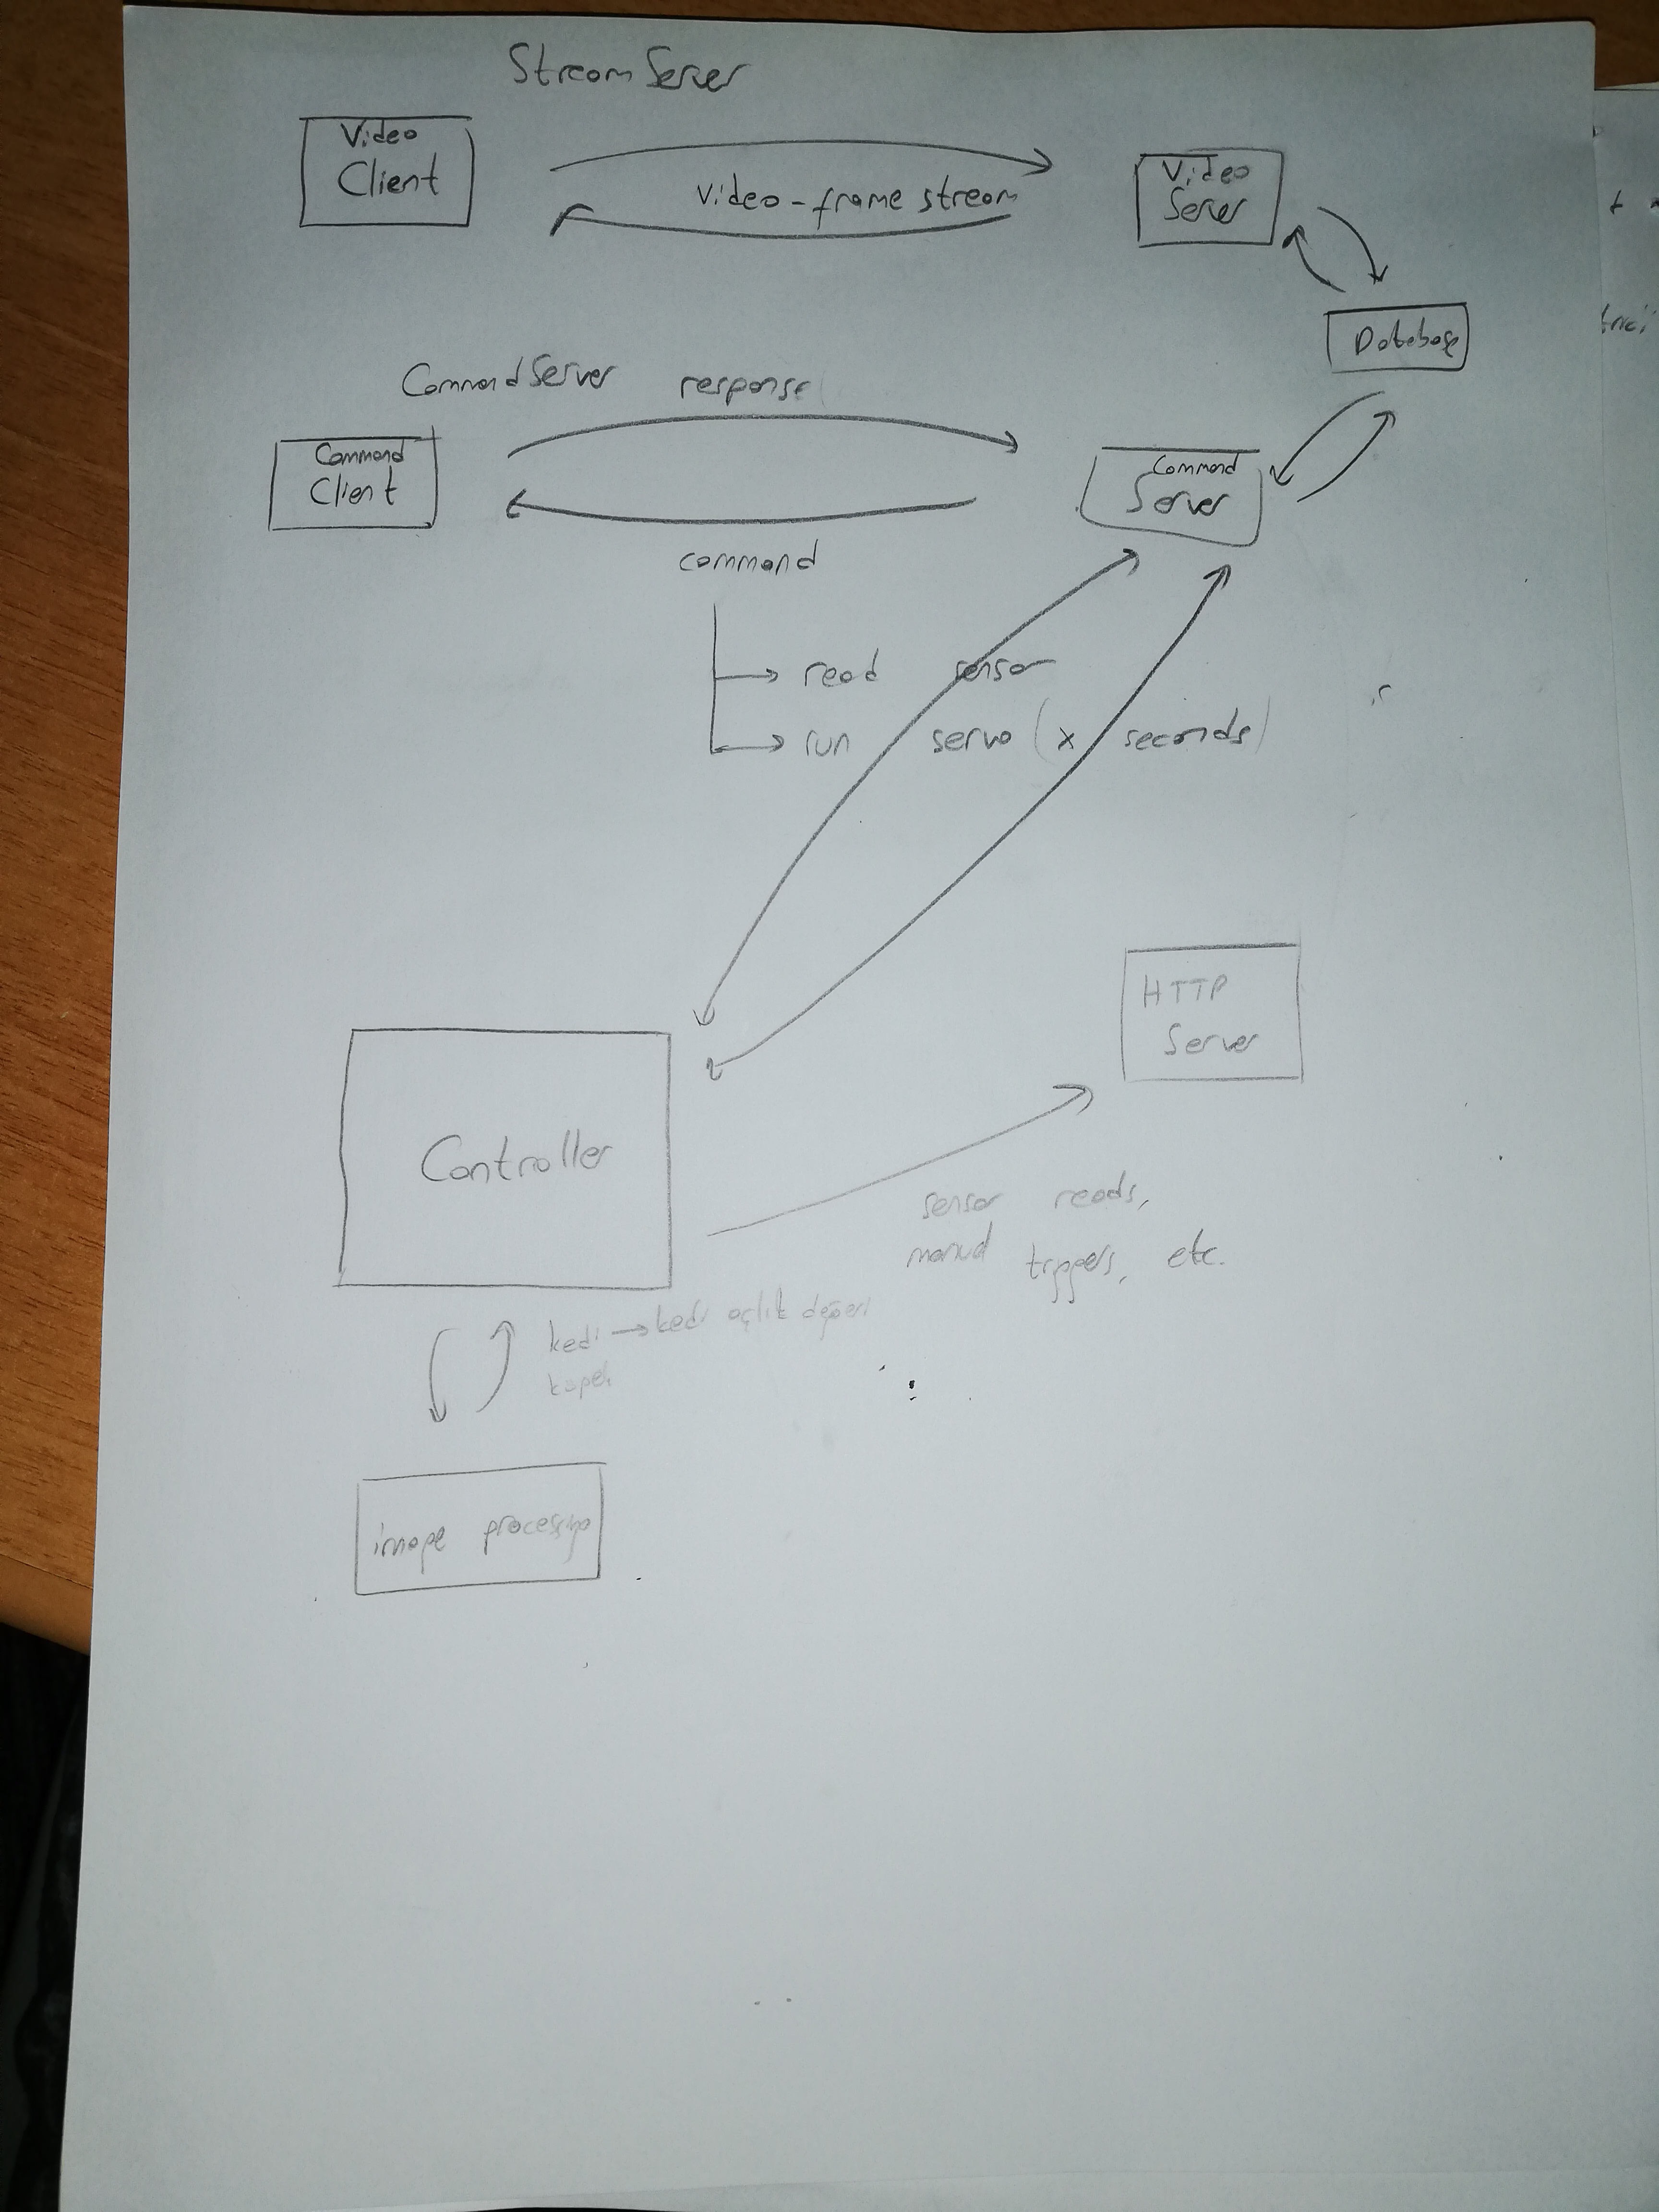 Stream Server
Video
Client
Video-frame stream
Video
Server
Database
CommandServer response
Command
Client
Command
Server
command
read sensor
run servo (x seconds)
HTTP
Server
Controller
sensor reads,
manual triggers, etc.
kedi → kedi açlık değeri
köpek
image processing